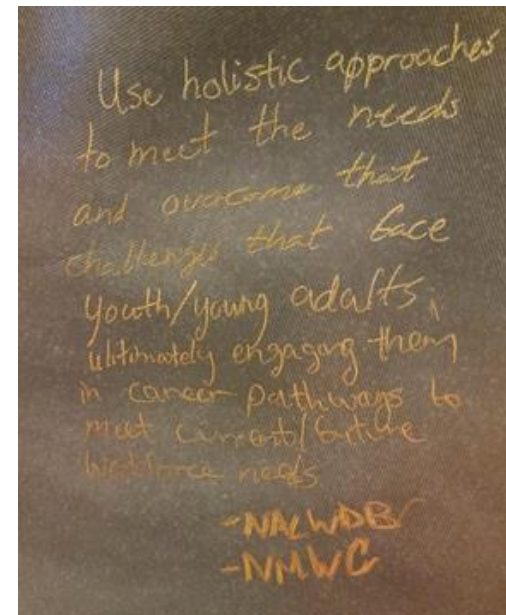 Use holistic approaches
to meet the needs
and overcome that
challenges that face
youth/young adults,
ultimately engaging them
in career pathways to
meet current/future
workforce needs
-NALWDB
-NMWC